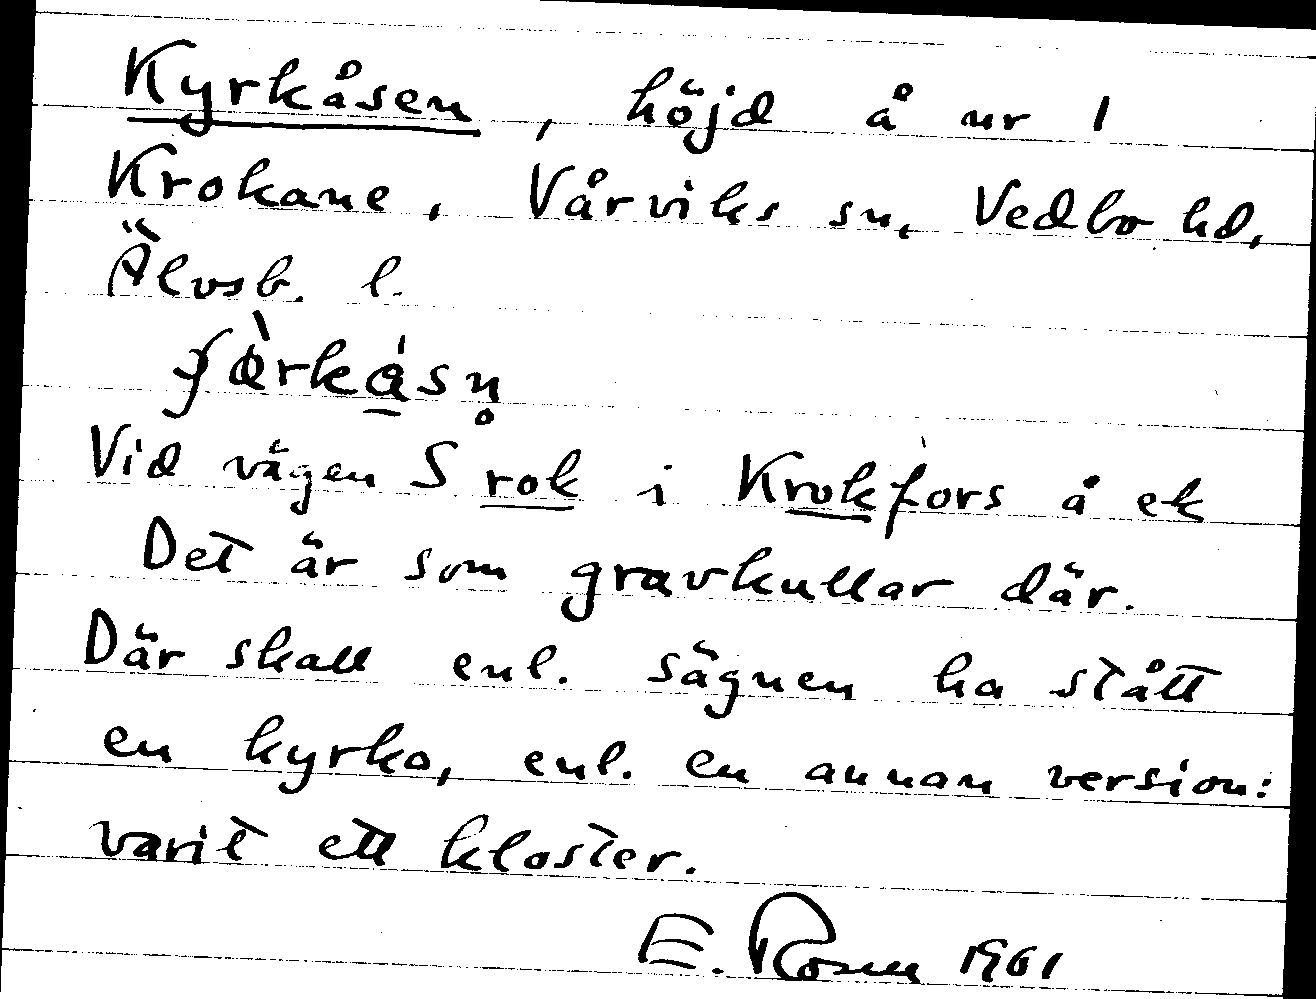 Kyrkåsen, höjd å nr 1
Krokane, Vårviks sn, Vedbo hd,
Älvsb. l.
Vid vägen S rok i Krokfors å ek
Det är som gravkullar där.
Där skall enl. sägnen ha stått
en kyrka, enl. en annan version:
varit ett kloster.
E. Rosén 1961